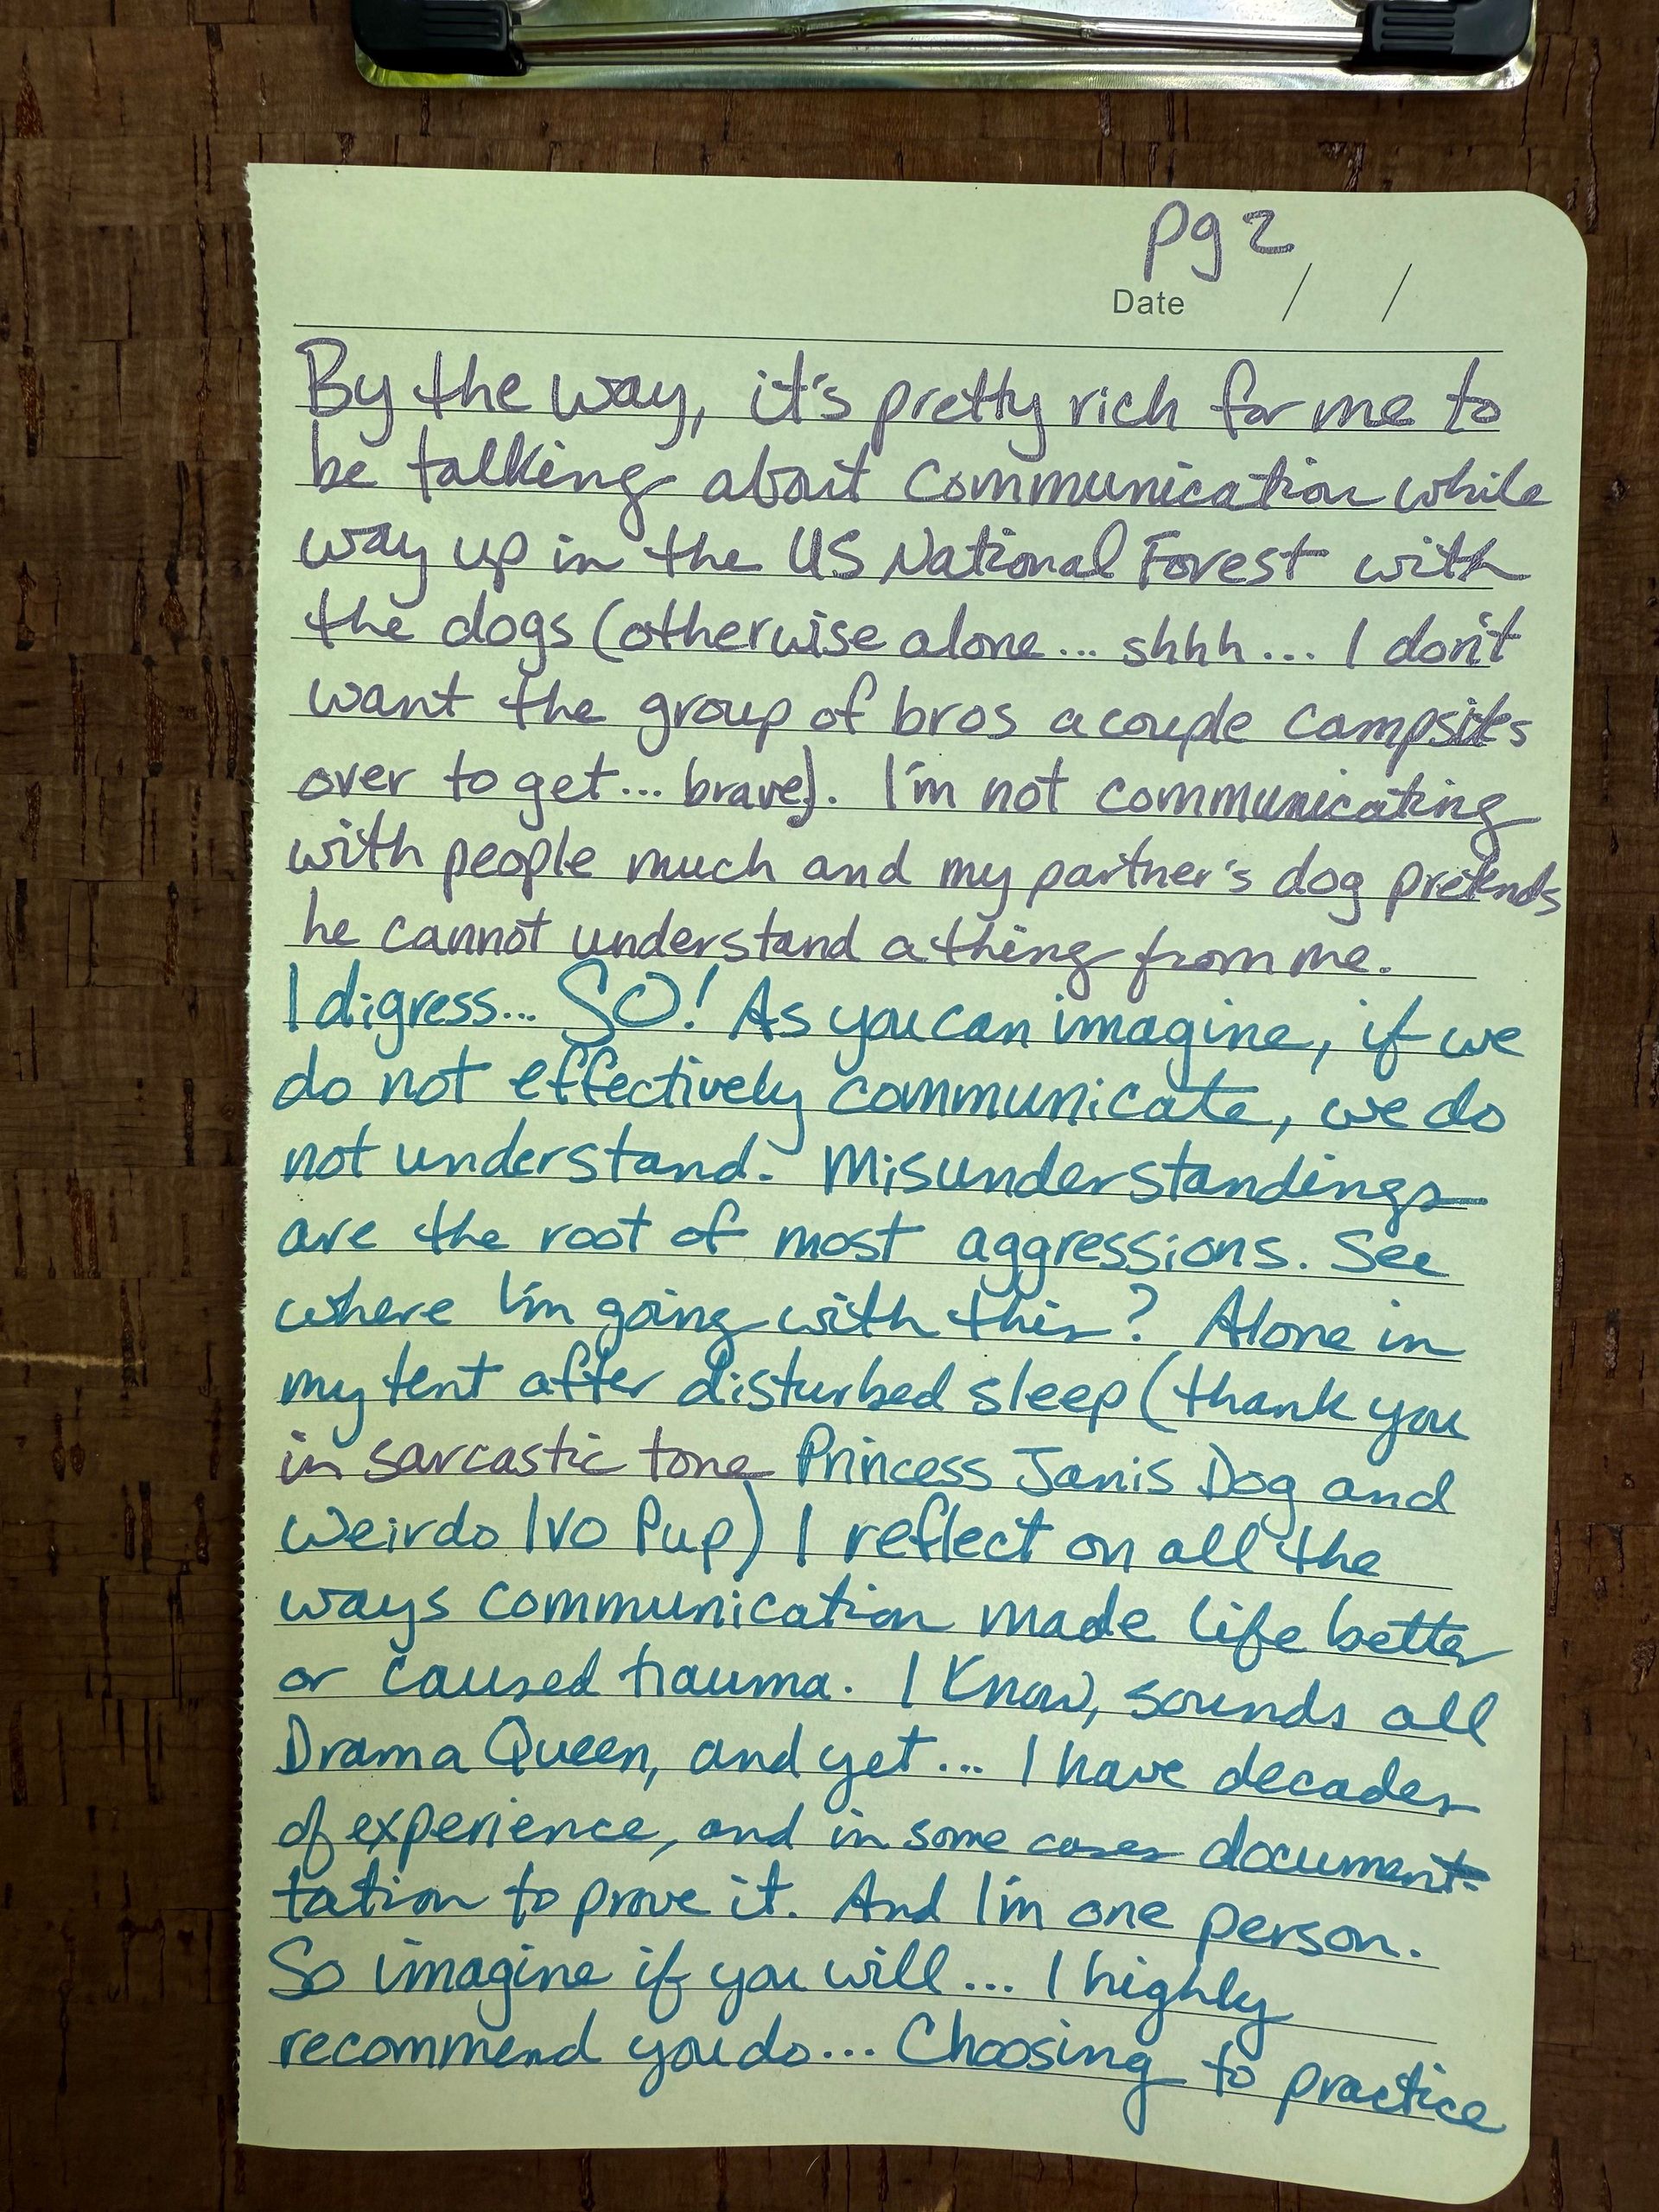 pg 2
Date / /
By the way, it's pretty rich for me to
be talking about communication while
way up in the US National Forest with
the dogs (otherwise alone... shhh... I don't
want the group of bros a couple campsites
over to get... brave). I'm not communicating
with people much and my partner's dog pretends
he cannot understand a thing from me.
I digress... SO! As you can imagine, if we
do not effectively communicate, we do
not understand. Misunderstandings
are the root of most aggressions. See
where I'm going with this? Alone in
my tent after disturbed sleep (thank you
in sarcastic tone Princess Janis Dog and
Weirdo Ivo Pup) I reflect on all the
ways communication made life better
or caused trauma. I know, sounds all
Drama Queen, and yet... I have decades
of experience, and in some cases document-
tation to prove it. And I'm one person.
So imagine if you will... I highly
recommend you do... Choosing to practice